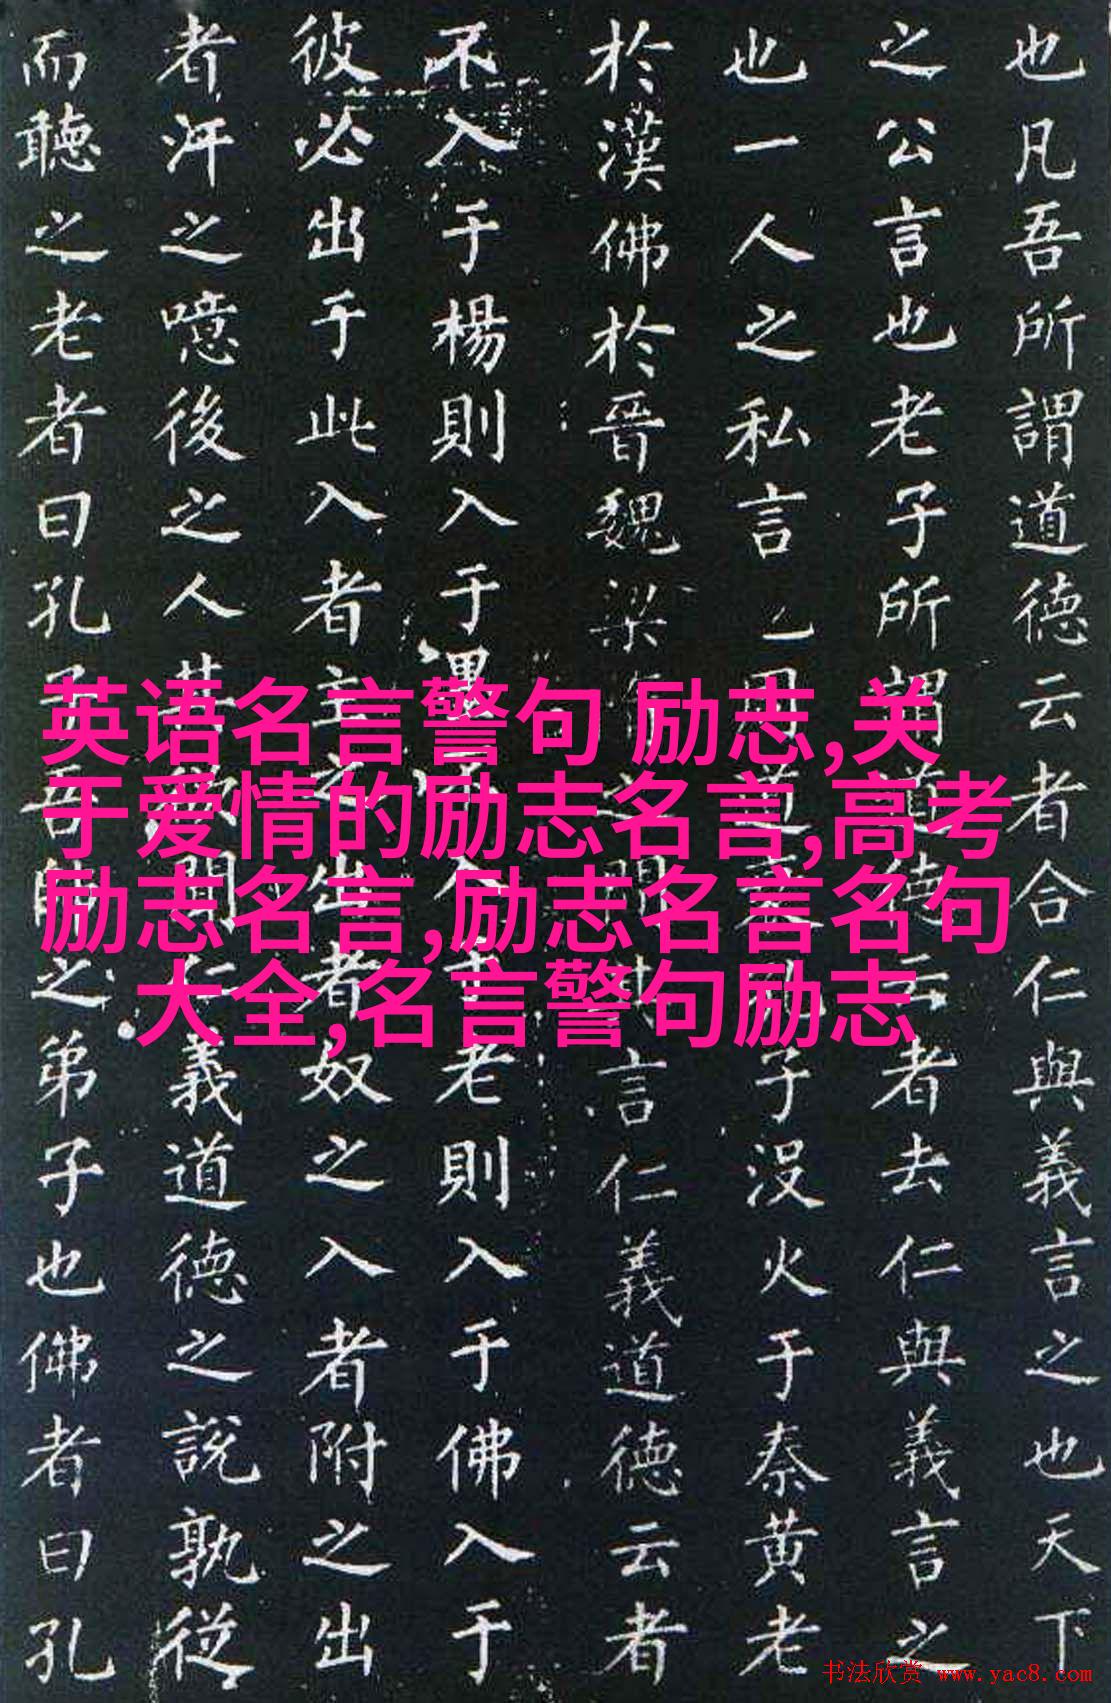 也凡吾所謂道德云者合仁與義言之也天下
之公言也老子所謂道德云者去仁與義言之
也一人之私言也周道衰孔子没火于秦黄老
於漢佛於晉魏梁隋之間其言仁義道德云者
不入于楊則入于墨不入于老則入于佛入于
彼必出于此入者主之出者奴之入者附之出
者汙之噫後之人其欲聞仁義道德之說孰從
而聽之老者曰孔子吾師之弟子也佛者曰孔
英语名言警句 励志,关
于爱情的励志名言,高考
励志名言,励志名言名句
大全,名言警句励志
书法欣赏 www.yac8.com